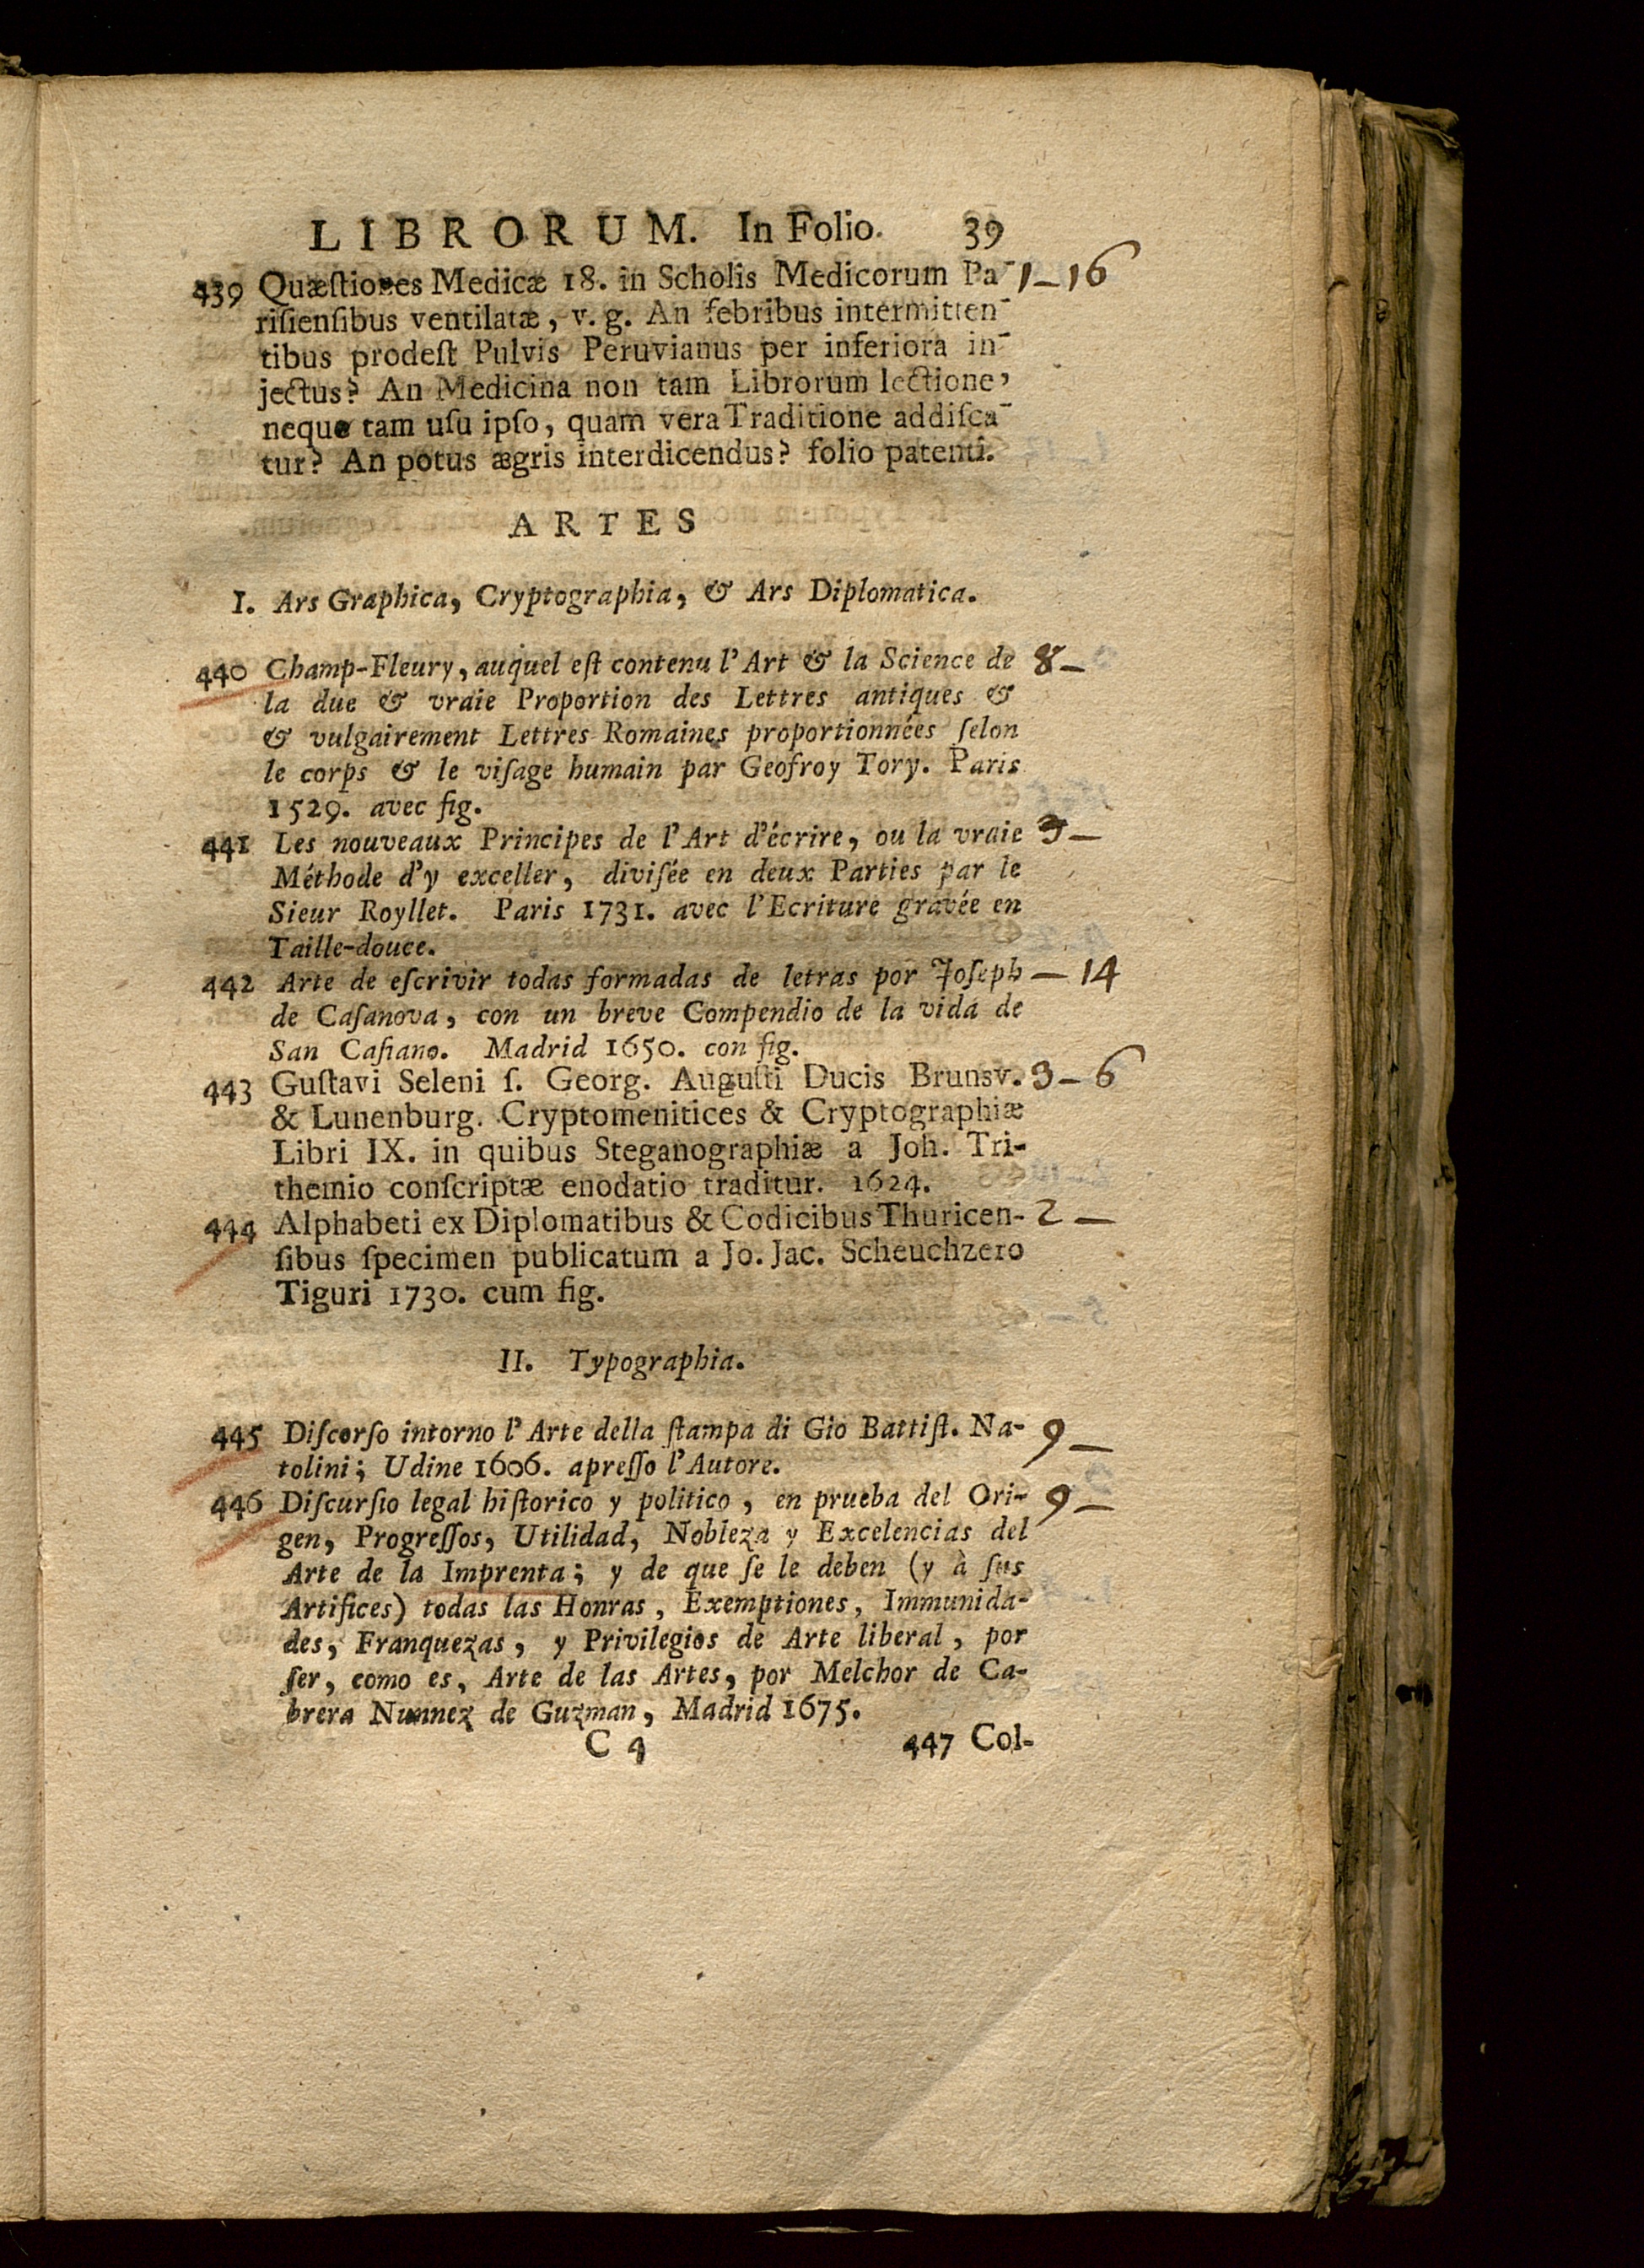 LIBRORUM. In Folio. 39
439 Quæſtiones Medicæ 18. in Scholis Medicorum Pa- 1-16
riſienſibus ventilatæ, v. g. An febribus intermitten-
tibus prodeſt Pulvis Peruvianus per inferiora in-
jectus? An Medicina non tam Librorum lectione,
neque tam uſu ipſo, quam vera Traditione addiſca-
tur? An potus ægris interdicendus? folio patenti.
ARTES
I. Ars Graphica, Cryptographia, & Ars Diplomatica.
440 Champ-Fleury, auquel eſt contenu l'Art & la Science de 8-
la due & vraie Proportion des Lettres antiques &
& vulgairement Lettres Romaines proportionnées ſelon
le corps & le viſage humain par Geofroy Tory. Paris
1529. avec fig.
441 Les nouveaux Principes de l'Art d'écrire, ou la vraie 3-
Méthode d'y exceller, diviſée en deux Parties par le
Sieur Royllet. Paris 1731. avec l'Ecriture gravée en
Taille-douce.
442 Arte de eſcrivir todas formadas de letras por Joſeph -14
de Caſanova, con un breve Compendio de la vida de
San Caſiano. Madrid 1650. con fig.
443 Guſtavi Seleni ſ. Georg. Auguſti Ducis Brunsv. 3-6
& Lunenburg. Cryptomenitices & Cryptographiæ
Libri IX. in quibus Steganographiæ a Joh. Tri-
themio conſcriptæ enodatio traditur. 1624.
444 Alphabeti ex Diplomatibus & Codicibus Thuricen- 2-
ſibus ſpecimen publicatum a Jo. Jac. Scheuchzero
Tiguri 1730. cum fig.
II. Typographia.
445 Diſcorſo intorno l'Arte della ſtampa di Gio Battiſt. Na- 9-
tolini; Udine 1606. apreſſo l'Autore.
446 Diſcurſio legal hiſtorico y politico, en prueba del Ori- 9-
gen, Progreſſos, Utilidad, Nobleza y Excelencias del
Arte de la Imprenta; y de que ſe le deben (y à ſus
Artifices) todas las Honras, Exemptiones, Immunida-
des, Franquezas, y Privilegios de Arte liberal, por
ſer, como es, Arte de las Artes, por Melchor de Ca-
brera Nunnez de Guzman, Madrid 1675.
C 4 447 Col-